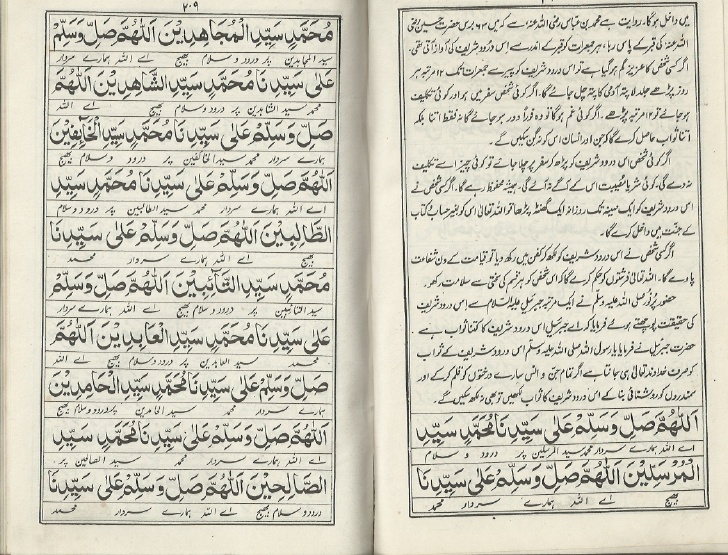 میں داخل ہوگا۔ روایت ہے محمد بن عباس رضی اللہ عنہ سے کہ میں ۶۴ برس حضرت حسین رضی
اللہ عنہ کی قبر کے پاس رہا، ہر جمعرات کو قبر کے اندر سے اس درود شریف کی آواز آتی تھی۔
اگر کسی شخص کا عزیز گم ہو گیا ہے تو اس درود شریف کو پیر سے جمعرات تک ۱۲ مرتبہ ہر
روز پڑھے جلد لاپتہ آدمی کا پتہ چل جائے گا۔ اگر کوئی شخص سفر میں ہو اور کوئی تکلیف
ہو جائے تو ۱۲ مرتبہ پڑھے۔ اگر کوئی غم ہوگا تو وہ فوراً دور ہو جائے گا نہ فقط اتنا بلکہ
اتنا ثواب حاصل کرے گا کہ جن اور انسان اس کو نہ گن سکیں گے۔
اگر کوئی شخص اس درود شریف کو پڑھ کر سفر پر چلا جائے تو کوئی چیز اسے تکلیف
نہ دے گی۔ کوئی شر یا مصیبت اس کے آگے نہ آئے گی۔ ہمیشہ محفوظ رہے گا۔ اگر کسی شخص نے
اس درود شریف کو ایک مہینہ تک روزانہ ایک گھنٹہ پڑھا تو اللہ تعالیٰ اس کو بغیر حساب کتاب
کے جنت میں داخل کرے گا۔
اگر کسی شخص نے اس درود شریف کو لکھ کر کفن میں رکھ دیا تو قیامت کے دن شفاعت
پاوے گا۔ اللہ تعالیٰ فرشتوں کو حکم کرے گا کہ اس شخص کو ہر قسم کی سختی سے سلامت رکھو۔
حضور پر نور صلی اللہ علیہ وسلم نے ایک مرتبہ جبرئیل علیہ السلام سے اس درود شریف
کی حقیقت پوچھتے ہوئے فرمایا کہ اے جبرئیل اس درود شریف کا کتنا ثواب ہے۔
حضرت جبرئیل نے فرمایا یا رسول اللہ صلی اللہ علیہ وسلم اس درود شریف کے ثواب
کو صرف خداوند تعالیٰ ہی جانتا ہے اگر تمام جن و انس سارے درختوں کو قلم کر کے اور
سمندروں کو روشنائی بنا کے اس درود شریف کا ثواب لکھیں تو بھی نہ لکھ سکیں گے۔
اَللّٰهُمَّ صَلِّ وَسَلِّمْ عَلٰى سَيِّدِنَا مُحَمَّدٍ سَيِّدِ
اے اللہ ہمارے سردار محمد سید المرسلین پر درود و سلام
الْمُرْسَلِيْنَ اَللّٰهُمَّ صَلِّ وَسَلِّمْ عَلٰى سَيِّدِنَا
بھیج اے اللہ ہمارے سردار محمد
۲۰۹
مُحَمَّدٍ سَيِّدِ الْمُجَاهِدِيْنَ اَللّٰهُمَّ صَلِّ وَسَلِّمْ
سید المجاہدین پر درود و سلام بھیج اے اللہ ہمارے سردار
عَلٰى سَيِّدِنَا مُحَمَّدٍ سَيِّدِ الشَّاهِدِيْنَ اَللّٰهُمَّ
محمد سید الشاہدین پر درود و سلام بھیج اے اللہ
صَلِّ وَسَلِّمْ عَلٰى سَيِّدِنَا مُحَمَّدٍ سَيِّدِ الْخَآئِفِيْنَ
ہمارے سردار محمد سید الخائفین پر درود و سلام بھیج
اَللّٰهُمَّ صَلِّ وَسَلِّمْ عَلٰى سَيِّدِنَا مُحَمَّدٍ سَيِّدِ
اے اللہ ہمارے سردار محمد سید الطالبین پر درود و سلام
الطَّالِبِيْنَ اَللّٰهُمَّ صَلِّ وَسَلِّمْ عَلٰى سَيِّدِنَا
بھیج اے اللہ ہمارے سردار محمد
مُحَمَّدٍ سَيِّدِ التَّآئِبِيْنَ اَللّٰهُمَّ صَلِّ وَسَلِّمْ
سید التائبین پر درود و سلام بھیج اے اللہ ہمارے سردار
عَلٰى سَيِّدِنَا مُحَمَّدٍ سَيِّدِ الْعَابِدِيْنَ اَللّٰهُمَّ
محمد سید العابدین پر درود و سلام بھیج اے اللہ
صَلِّ وَسَلِّمْ عَلٰى سَيِّدِنَا مُحَمَّدٍ سَيِّدِ الْحَامِدِيْنَ
ہمارے سردار محمد سید الحامدین پر درود و سلام بھیج
اَللّٰهُمَّ صَلِّ وَسَلِّمْ عَلٰى سَيِّدِنَا مُحَمَّدٍ سَيِّدِ
اے اللہ ہمارے سردار محمد سید الصالحین پر
الصَّالِحِيْنَ اَللّٰهُمَّ صَلِّ وَسَلِّمْ عَلٰى سَيِّدِنَا
درود و سلام بھیج اے اللہ ہمارے سردار محمد